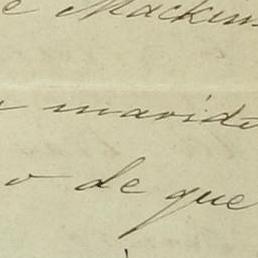 e Mackin
marido
o de que